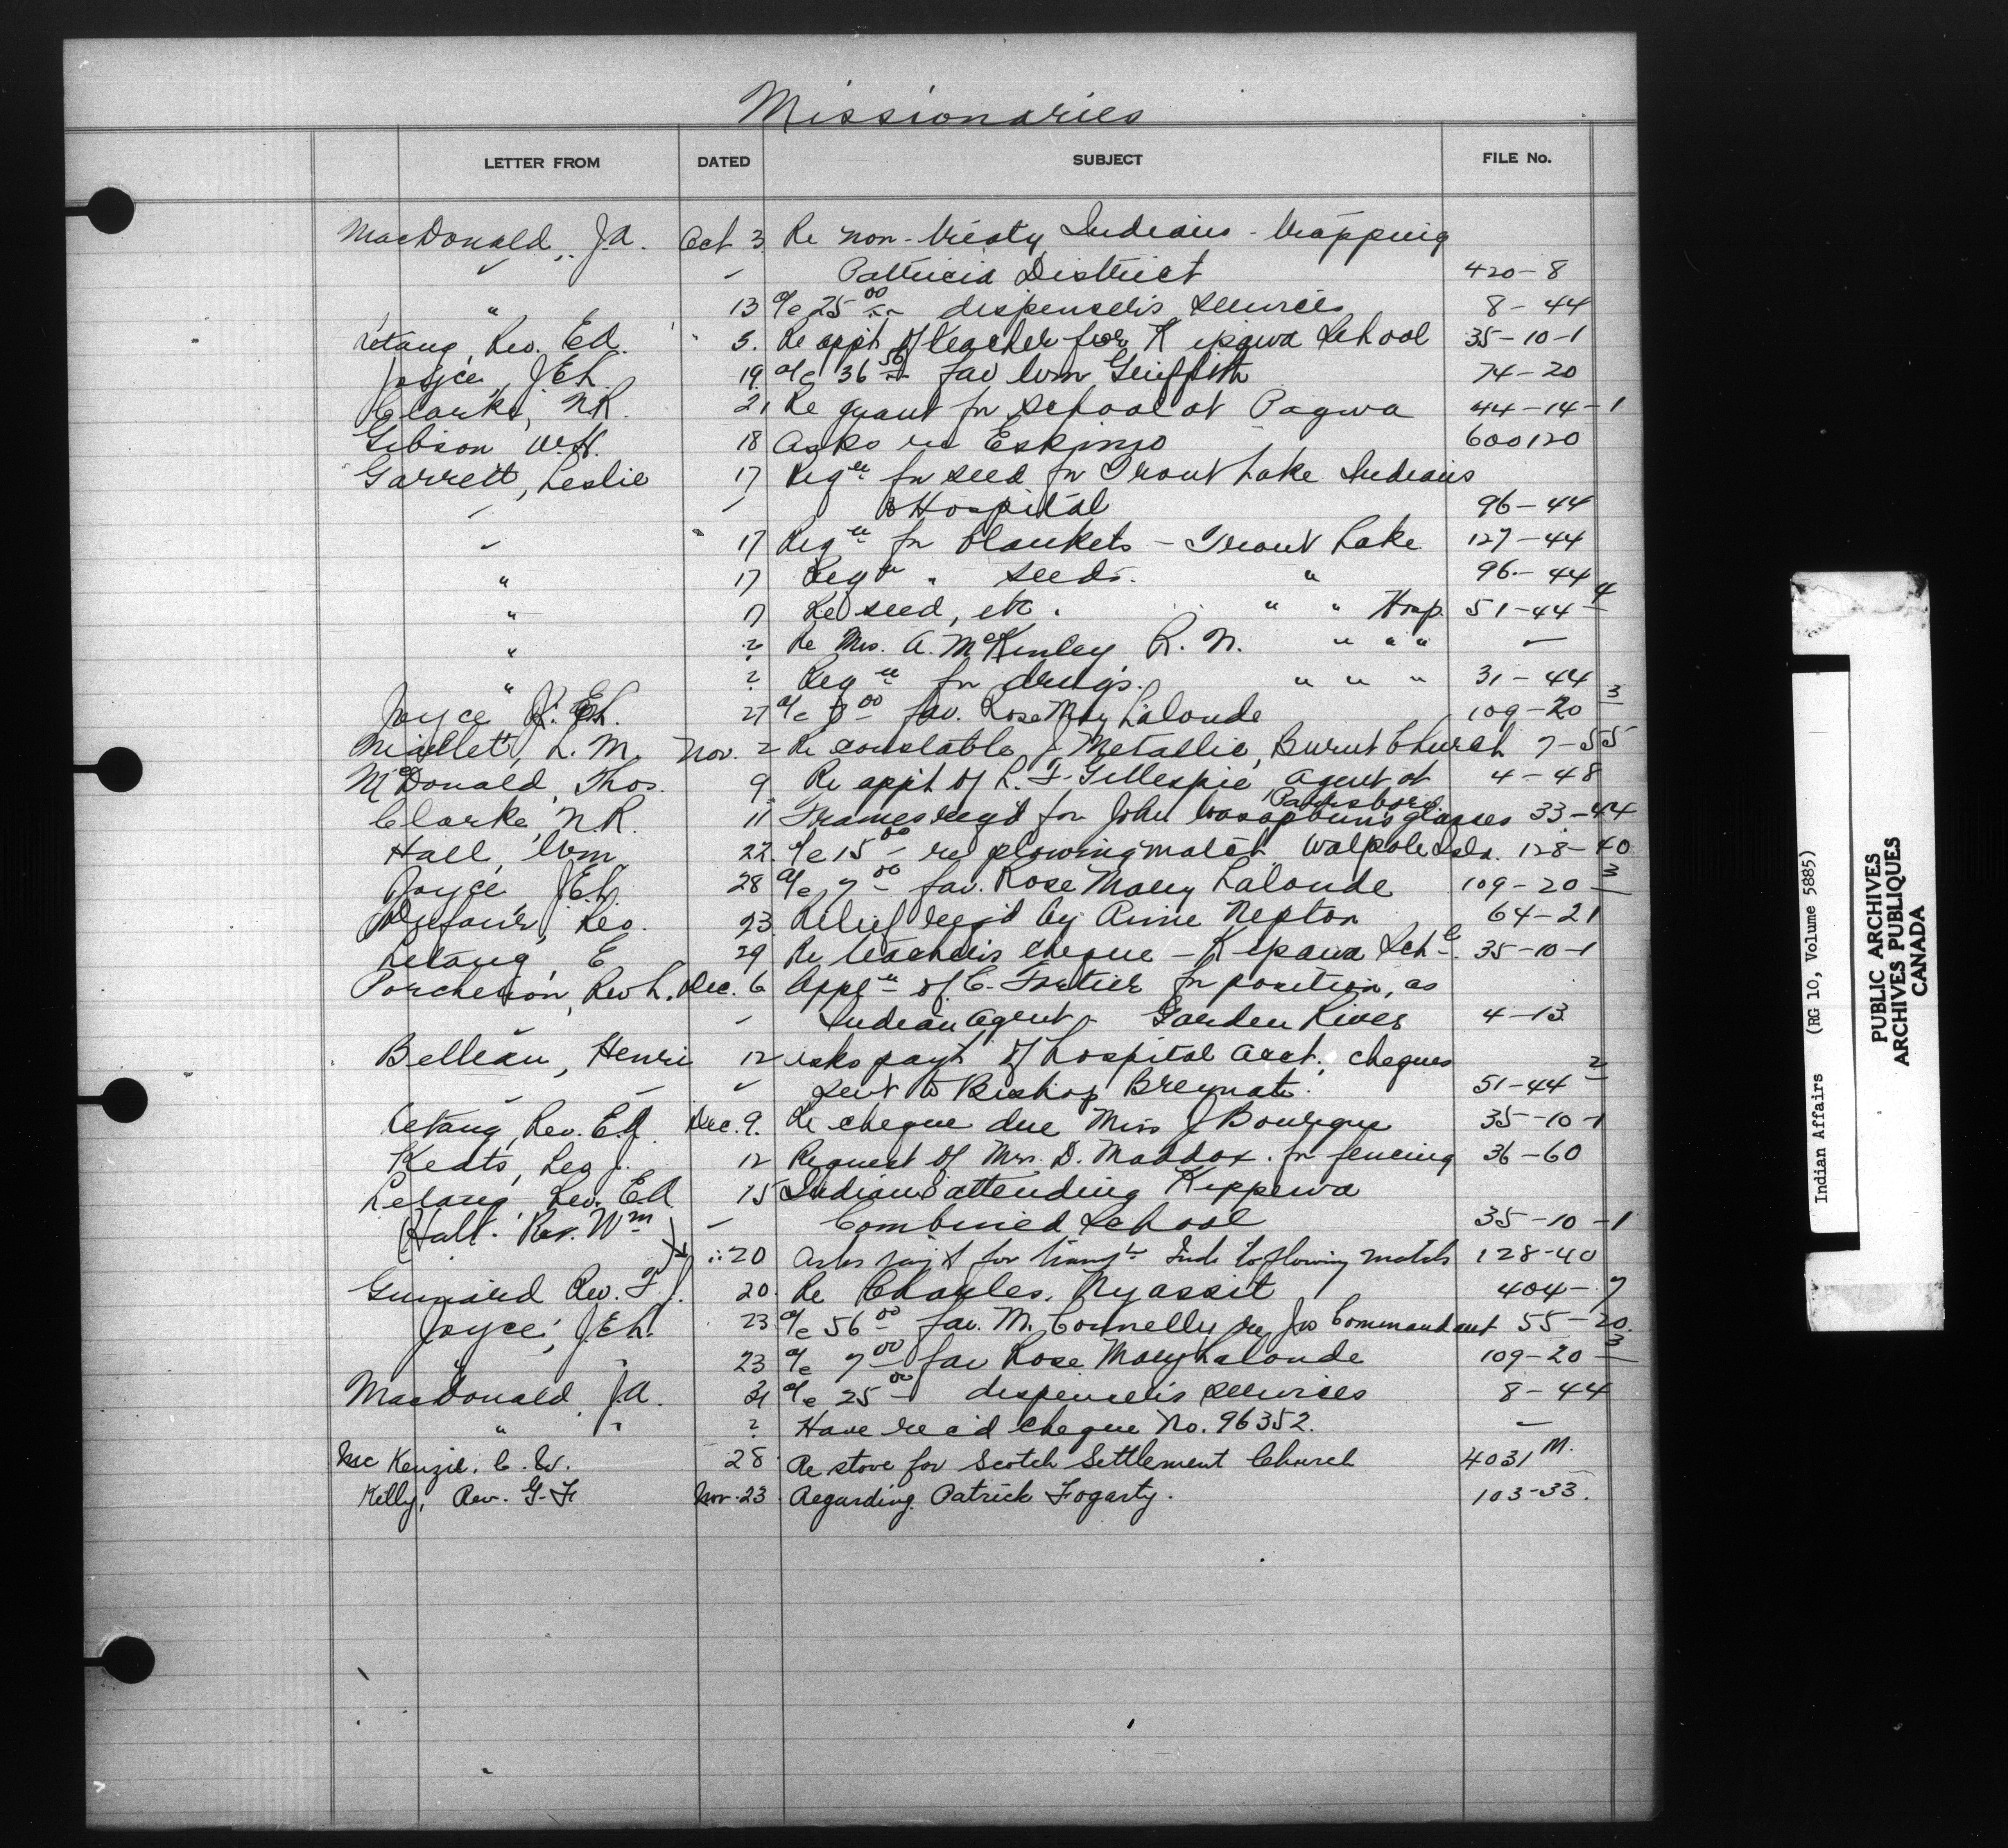 Missionaries
LETTER FROM DATED SUBJECT FILE No.
MacDonald, J.A. Oct 3 Re non-treaty Indians - trapping
" " Patricia District 420-8
" 13 a/c 25 00 dispenser's services 8-44
Letang, Rev. Ed. " 5. Re appt of teacher for Kipawa School 35-10-1
Joyce, J.E.L. 19. a/c 36 50 fav Wm Griffith 74-20
Clarke, N.R. 21 Re grant for school at Pagwa 44-14-1
Gibson W.H. 18 Asks re Eskimo 600120
Garrett, Leslie 17 Reqn for seed for Trout Lake Indians
" " & Hospital 96-44
" " 17 Reqn for blankets - Trout Lake 127-44
" 17 Reqn " seeds. " 96-44
" 17 Re seed, etc. " " Hosp. 51-44 4
" ? Re Mrs. A. McKinley R.N. " " " —
" ? Reqn for drugs. " " " 31-44
Joyce J.E.L. 27 a/c 7 00 fav. Rose Mary Lalonde 109-20 3
L.M. Nov. 2 Re constable J. Metallic, Burnt Church 7-55
McDonald, Thos. 9 Re appt of L.F. Gillespie agent at 4-48
Parrsboro.
Clarke, N.R. 11 Frames req'd for John glasses 33-44
Hall, Wm 22. a/c 15 00 re plowing match Walpole Isld. 128-40
Joyce J.E.L. 28 a/c 7 00 fav. Rose Mary Lalonde 109-20 3
Dufour, Leo. 23 Relief req'd by Anne Nepton 64-21
Letang, E 29 Re teacher's cheque - Kipawa Schl. 35-10-1
Porcheron, Rev L. Dec. 6 Appn of C. Fortier for position, as
" Indian Agent - Garden River 4-13
Belleau, Henri 12 asks pay't of hospital acct, cheques
" " sent to Bishop Breynat. 51-44 2
Letang, Rev. Ed. Dec. 9. Re cheque due Miss J Bourque 35-10-1
Keats, Leo J. 12 Request of Mrs. D. Maddox for fencing 36-60
Letang Rev. Ed. 15 Indians attending Kippewa
" Combined School 35-10-1
(Hall. Rev. Wm) " 20 Asks pay't for transn Inds to plowing match 128-40
Guinard Rev. F J. 20. Re Charles Nyassit 404-7
Joyce, J.E.L. 23 a/c 56 00 fav. M. Connelly re Jos Commandant 55-20.
" " 23 a/c 7 00 fav Rose Mary Lalonde 109-20 3
MacDonald, J.A. 31 a/c 25 00 dispenser's services 8-44
" " ? Have rec'd cheque No. 96352. —
McKenzie, C.W. 28 Re stove for Scotch Settlement Church 4031 M.
Kelly, Rev. G.F. Nov. 23 Regarding Patrick Fogarty. 103-33.
Indian Affairs (RG 10, Volume 5885)
PUBLIC ARCHIVES
ARCHIVES PUBLIQUES
CANADA